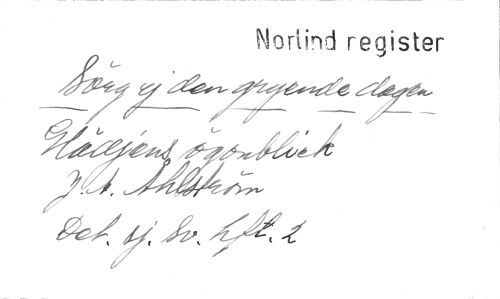 Norlind register
Sörg ej den gryende dagen
Glädjens ögonblick
J. N. Ahlström
Det. sj. Sv. hft. 2